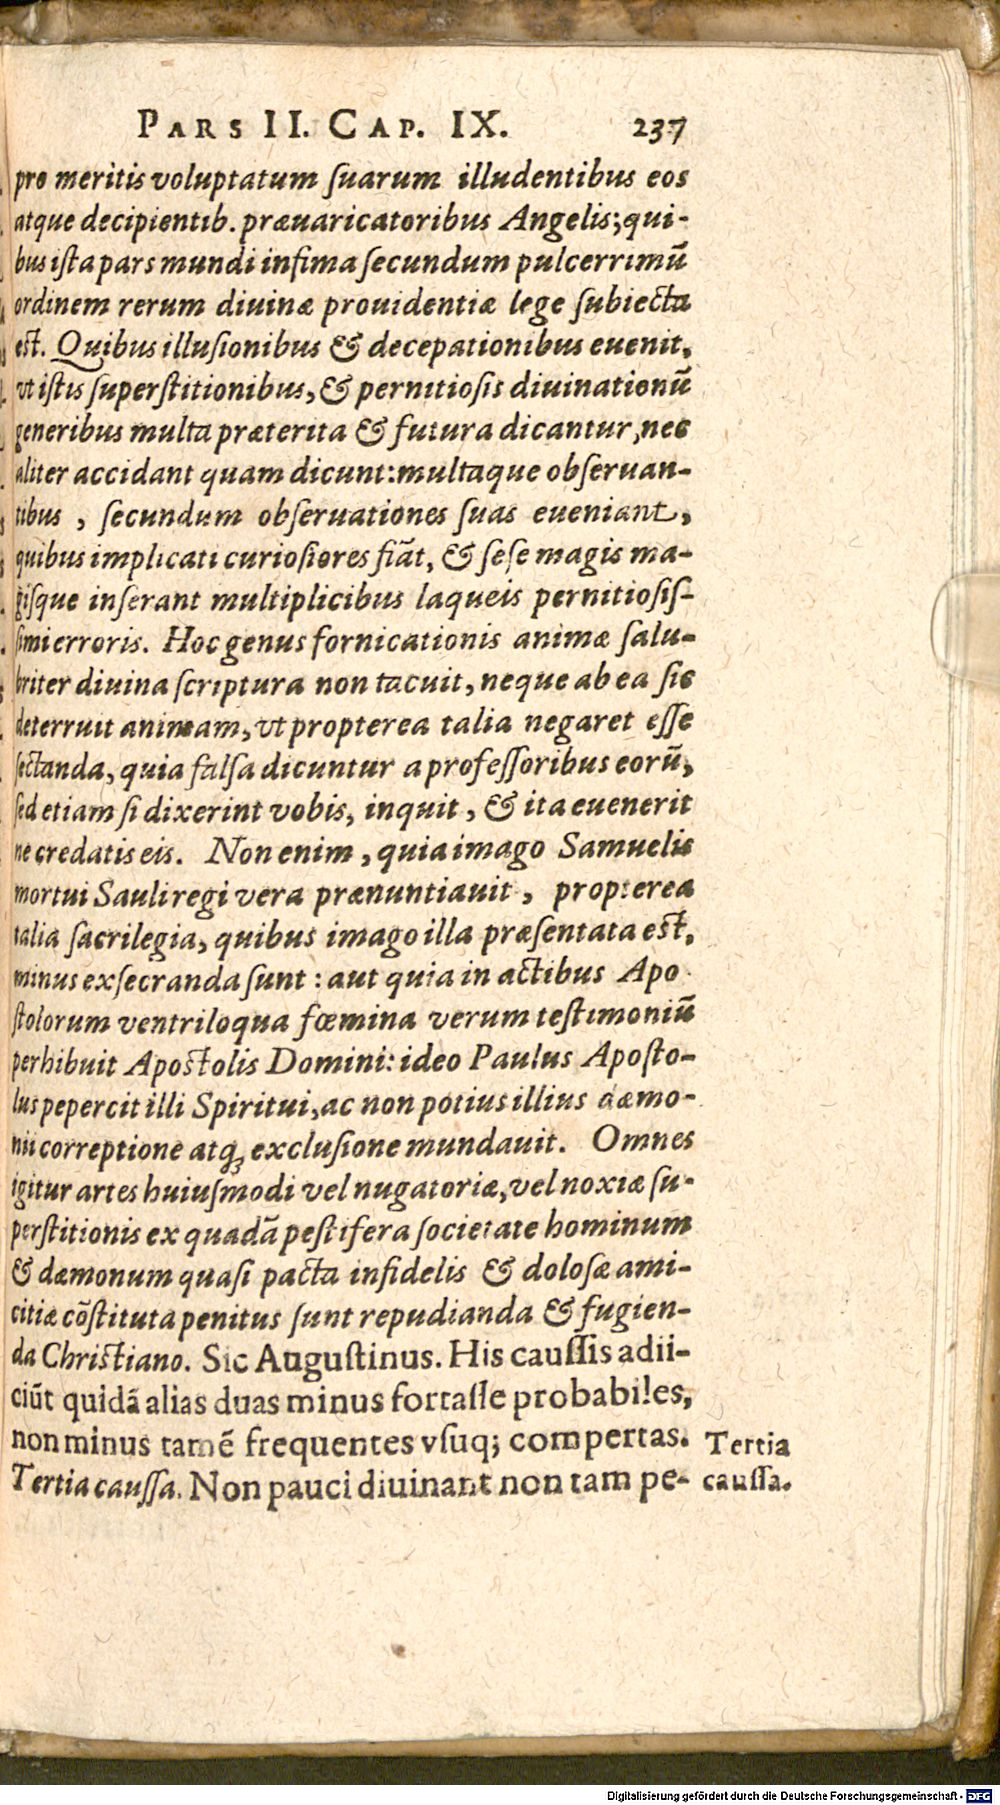 PARS II. CAP. IX. 237
pro meritis voluptatum ſuarum illudentibus eos
atque decipientib. præuaricatoribus Angelis; qui-
bus iſta pars mundi infima ſecundum pulcerrimū
ordinem rerum diuinæ prouidentiæ lege ſubiecta
eſt. Quibus illuſionibus & decepationibus euenit,
vt iſtis ſuperſtitionibus, & pernitioſis diuinationū
generibus multa præterita & futura dicantur, nec
aliter accidant quam dicunt: multaque obſeruan-
tibus , ſecundum obſeruationes ſuas eueniant,
quibus implicati curioſiores fiāt, & ſeſe magis ma-
giſque inſerant multiplicibus laqueis pernitioſiſ-
ſimi erroris. Hoc genus fornicationis animæ ſalu-
briter diuina ſcriptura non tacuit, neque ab ea ſic
deterruit animam, vt propterea talia negaret eſſe
ſectanda, quia falſa dicuntur a profeſſoribus eorū,
ſed etiam ſi dixerint vobis, inquit, & ita euenerit
ne credatis eis. Non enim, quia imago Samuelis
mortui Sauli regi vera prænuntiauit, propterea
talia ſacrilegia, quibus imago illa præſentata eſt,
minus exſecranda ſunt: aut quia in actibus Apo
ſtolorum ventriloqua fœmina verum teſtimoniū
perhibuit Apoſtolis Domini: ideo Paulus Apoſto-
lus pepercit illi Spiritui, ac non potius illius dæmo-
nii correptione atq; excluſione mundauit. Omnes
igitur artes huiuſmodi vel nugatoriæ, vel noxiæ ſu-
perſtitionis ex quadā peſtifera ſocietate hominum
& dæmonum quaſi pacta infidelis & doloſæ ami-
citiæ cōſtituta penitus ſunt repudianda & fugien-
da Chriſtiano. Sic Auguſtinus. His cauſſis adii-
ciūt quidā alias duas minus fortaſſe probabiles,
non minus tamē frequentes vſuq; compertas.
Tertia cauſſa. Non pauci diuinant non tam pe-
Tertia
cauſſa.
Digitalisierung gefördert durch die Deutsche Forschungsgemeinschaft - DFG